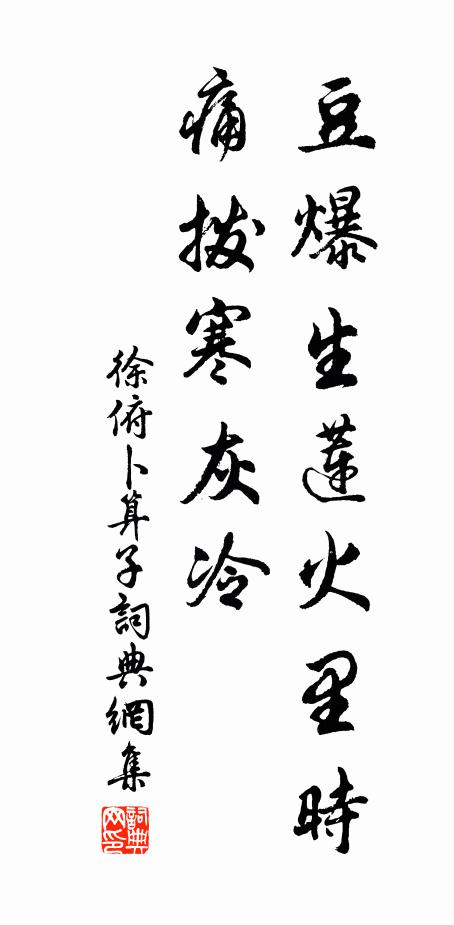 豆爆生蓮火里時
痛拨寒灰冷
徐俯卜算子詞典網集
詞典网印